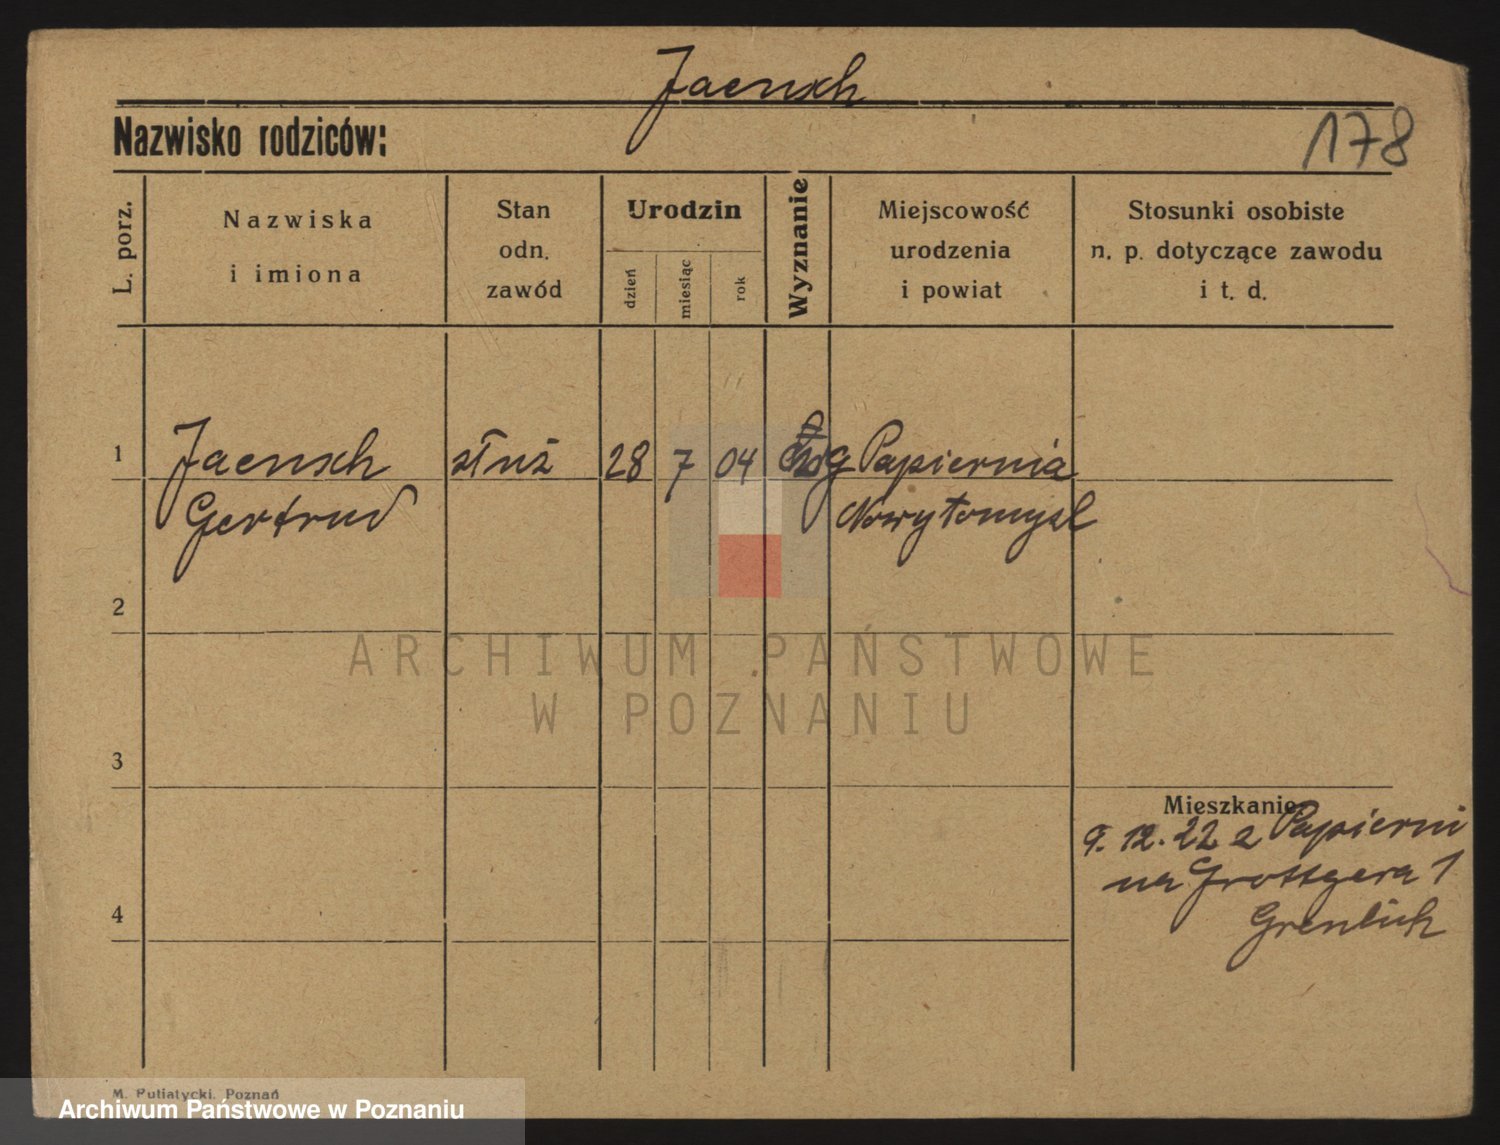 Jaensch
Nazwisko rodziców:
178
L. porz.
Nazwiska
i imiona
Stan
odn.
zawód
Urodzin
dzień
miesiąc
rok
Wyznanie
Miejscowość
urodzenia
i powiat
Stosunki osobiste
n. p. dotyczące zawodu
i t. d.
1
Jaensch
Gertrud
służ
28
7
04
Papiernia
Nowytomysl
2
ARCHIWUM PAŃSTWOWE
W POZNANIU
3
4
Mieszkanie
9. 12. 22 z Papierni
na Grottgera 1
M. Putiatycki. Poznań
Archiwum Państwowe w Poznaniu